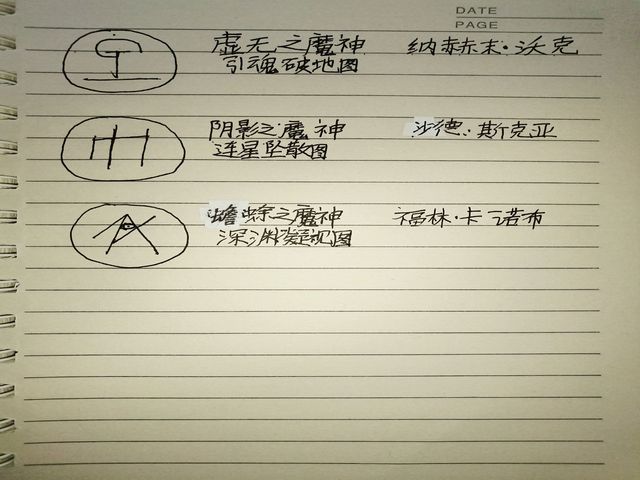 DATE
PAGE
虚无之魔神 纳赫末·沃克
引魂破地图
阴影之魔神 沙德·斯克亚
连星坠散图
蟾蜍之魔神 福林·卡诺布
深渊凝视图